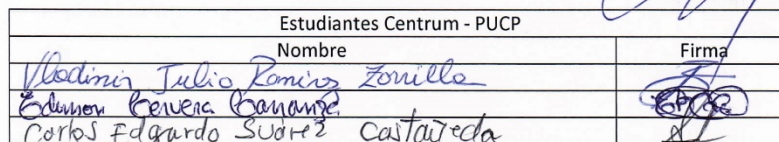 Estudiantes Centrum - PUCP
Nombre Firma
Vladimir Julio Ramirez Zorrilla
Edunson Cervera
Carlos Edgardo Suárez Castañeda